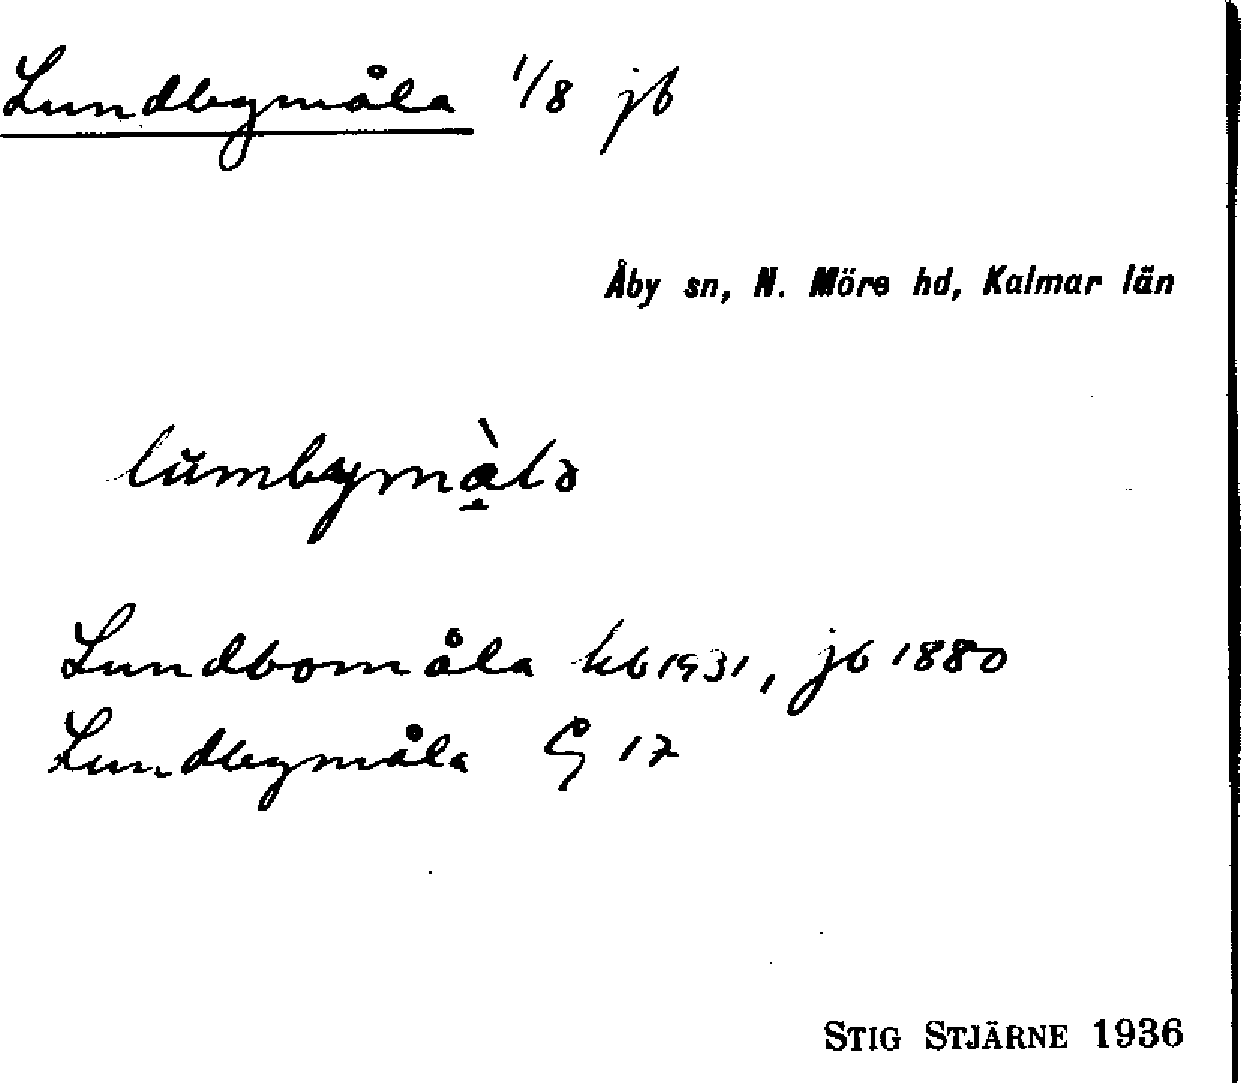 Lundbymåla 1/8 jb
Åby sn, N. Möre hd, Kalmar län
Lundbomåla kb 1931, jb 1880
Lundbymåla G 17
STIG STJÄRNE 1936